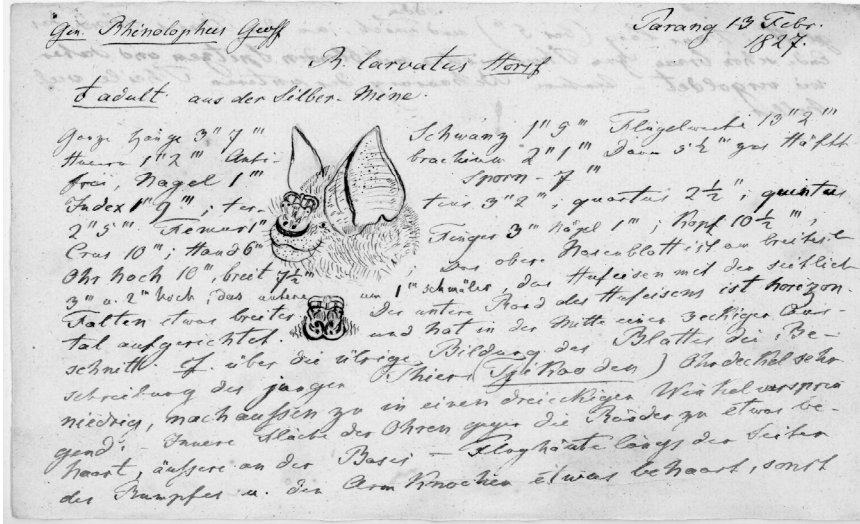 Gen. Rhinolophus Geoff
Parang 13 Febr.
1827.
Rh. larvatus Horsf
♂ adult aus der Silber-Mine.
Ganze Länge 3" 7"' Schwanz 1" 9"' Flügelweite 13" 2"'
Humer 1" 2"' Anti- brachium 2" 1"' Daum 5½"' zur Hälfte
frei, Nagel 1"' Sporn - 7"'
Index 1" 9"'; ter- tius 3" 2"'; quartus 2½"; quintus
2" 5"' Femur 1" Finger 3"' Nägel 1"'; Kopf 10½"',
Crus 10"'; Hand 6"' ; Das obere Nasenblatt ist am breitesten
Ohr hoch 10"', breit 7½"'
3"' u. 2"' hoch; das untere um 1"' schmäler, das Hufeisen mit den seitlich
Falten etwas breiter. Der untere Rand des Hufeisens ist horizon-
tal aufgerichtet. und hat in der Mitte einen 3eckigen Aus-
schnitt. cf. über die übrige Bildung des Blattes die Be-
schreibung des jungen Thiers ( ) Ohrdeckel sehr
niedrig, nach aussen zu in einen dreieckigen Winkel versprin
gend. - Innere Fläche der Ohren gegen die Ränder zu etwas be-
haart, äussere an der Basis - Flughäute längs der Seiten
des Rumpfes u. den Arm Knochen etwas behaart, sonst